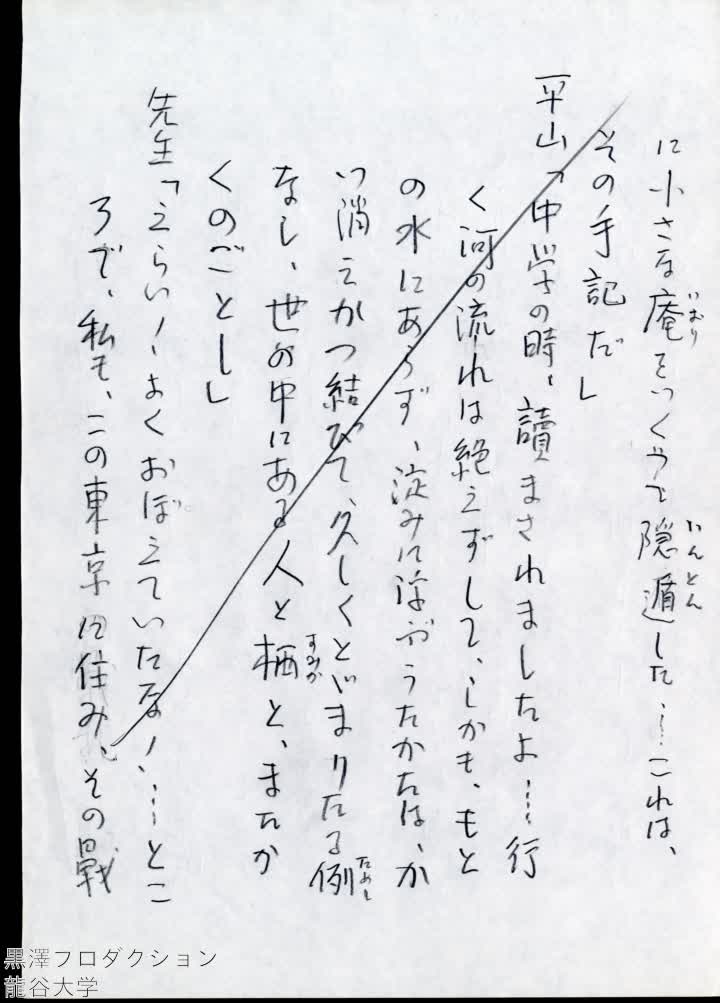 に小さな庵をつくって隠遁した……これは、
いおり
いんとん
その手記だ」
平山「中学の時、讀まされましたよ……行
く河の流れは絶えずして、しかも、もと
の水にあらず、淀みに浮ぶうたかたは、か
つ消えかつ結びて、久しくとゞまりたる例
ためし
なし、世の中にある人と栖と、またか
すみか
くのごとし」
先生「えらい！よくおぼえていたな！……とこ
ろで、私も、この東京に住み、その戦
黒澤プロダクション
龍谷大学